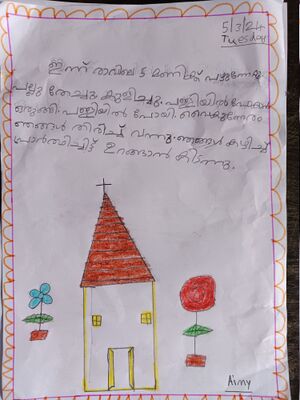 5/3/24
Tuesday
ഇന്ന് രാവിലെ 5 മണിക്ക് എഴുന്നേറ്റു.
പല്ലു തേച്ചു കുളിച്ചു. പള്ളിയിൽ പോകാൻ
ഒരുങ്ങി. പള്ളിയിൽ പോയി. വൈകുന്നേരം
ഞങ്ങൾ തിരിച്ച് വന്നു. ഞങ്ങൾ കഴിച്ച്
പ്രാർത്ഥിച്ചിട്ട് ഉറങ്ങാൻ കിടന്നു.
Aimy